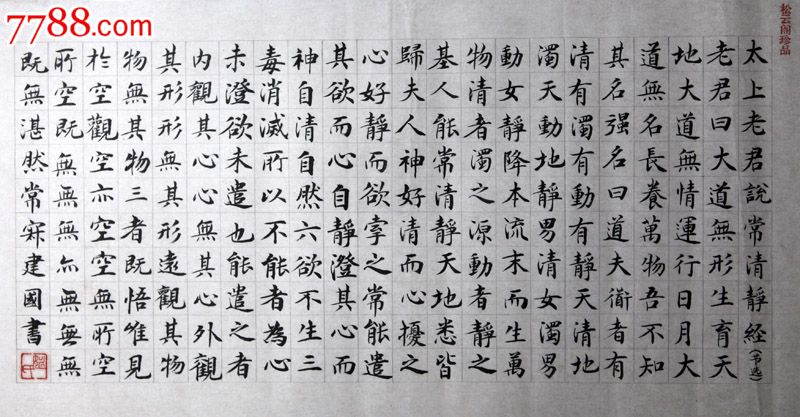 7788.com
松云阁珍品
太上老君說常清靜經(节选)
老君曰大道無形生育天
地大道無情運行日月大
道無名長養萬物吾不知
其名强名曰道夫衜者有
清有濁有動有靜天清地
濁天動地靜男清女濁男
動女靜降本流末而生萬
物清者濁之源動者靜之
基人能常清靜天地悉皆
歸夫人神好清而心擾之
心好靜而欲牽之常能遣
其欲而心自靜澄其心而
神自清自然六欲不生三
毒消滅所以不能者為心
未澄欲未遣也能遣之者
内觀其心心無其心外觀
其形形無其形遠觀其物
物無其物三者既悟唯見
於空觀空亦空空無所空
所空既無無無亦無無無
既無湛然常寂建國書